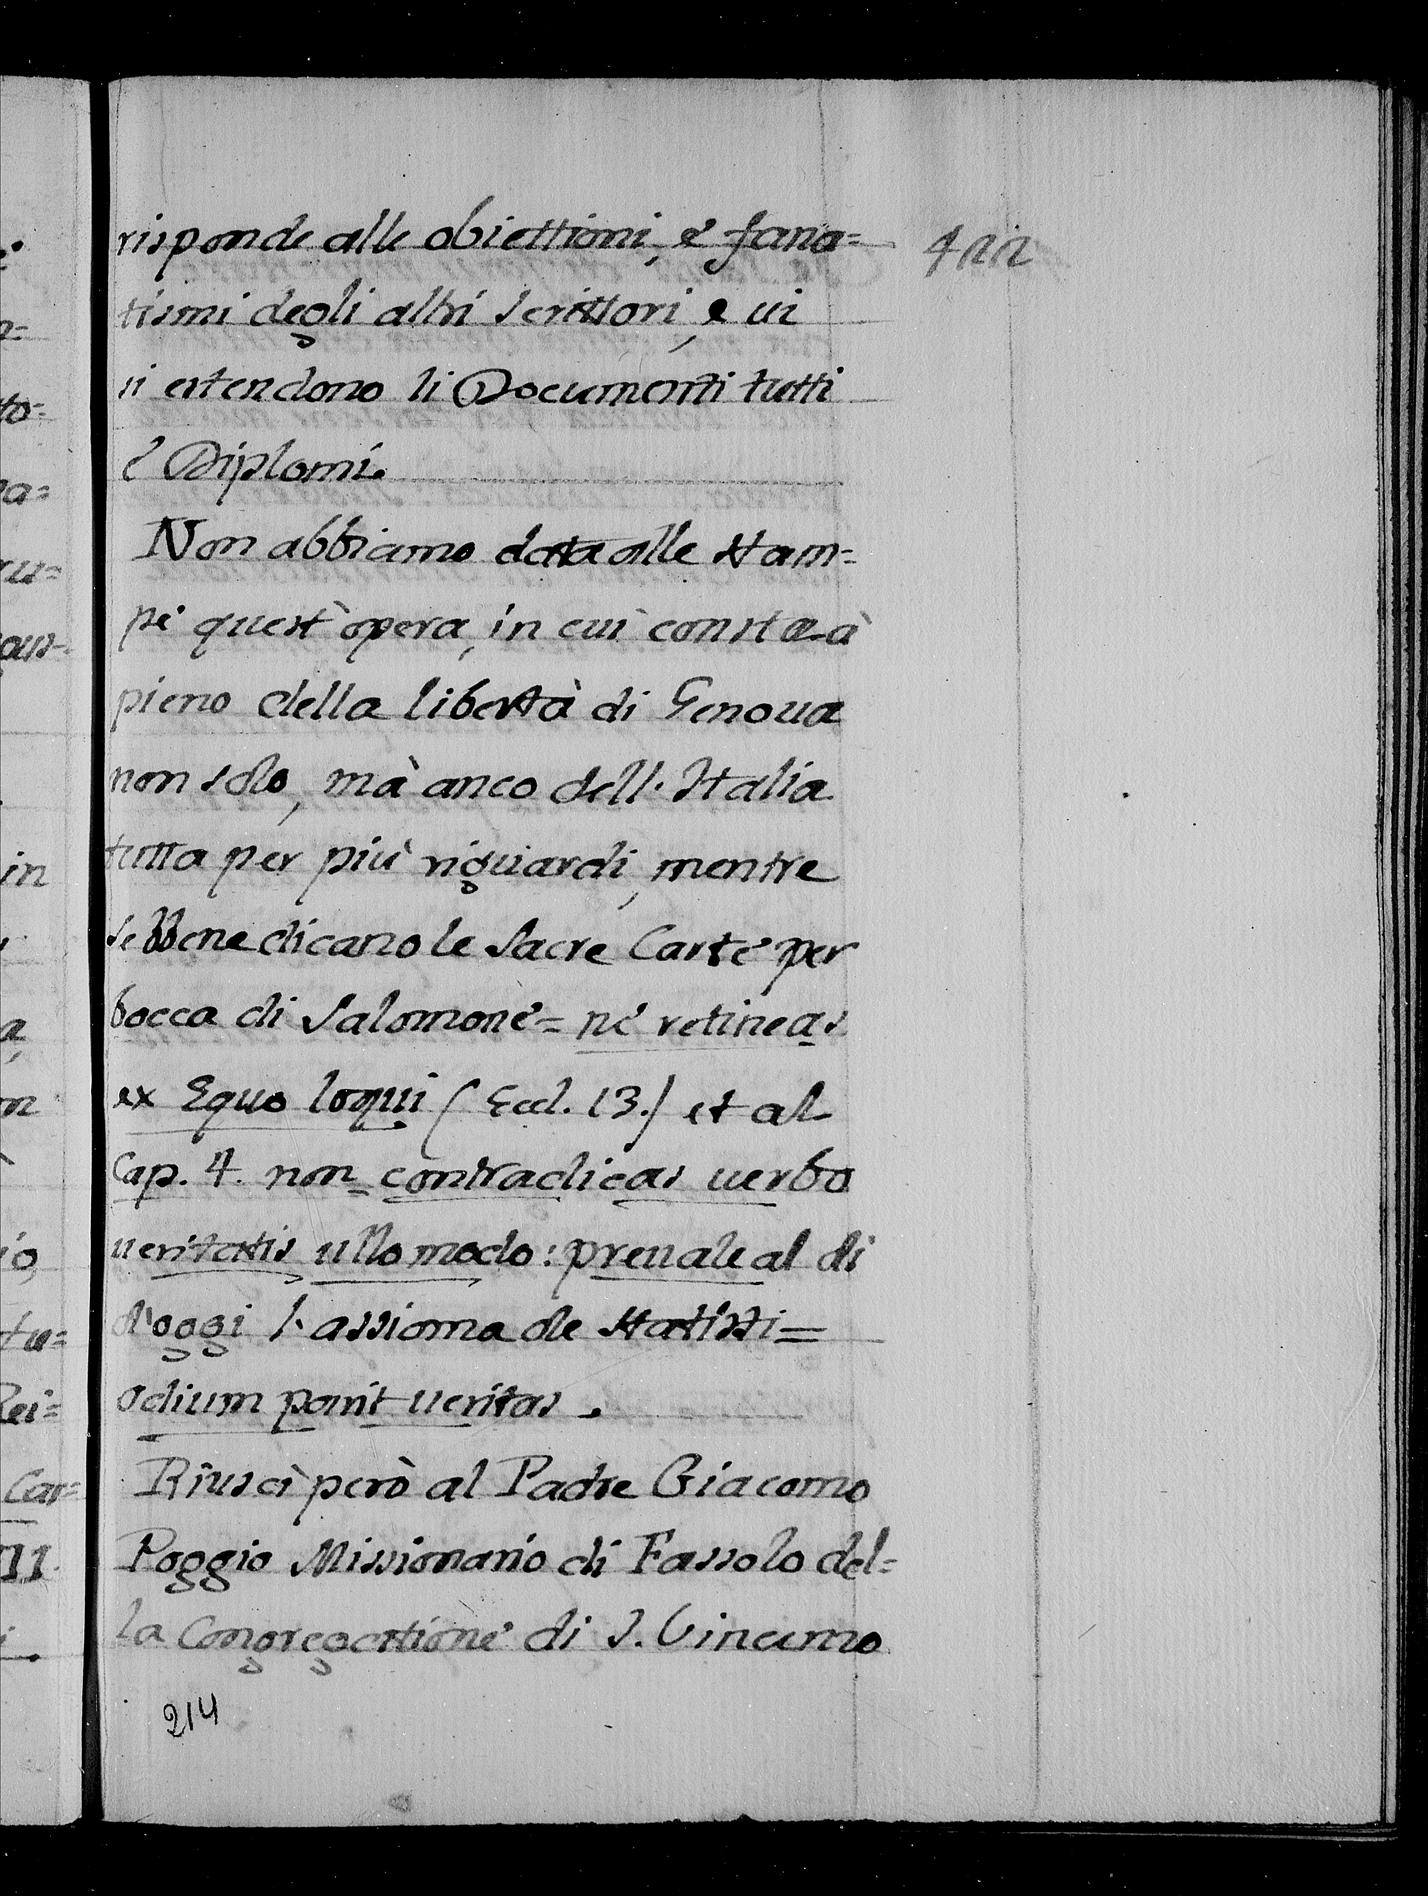 risponde alle obiettioni, è fana=
422
tismi degli altri Scrittori, e ui
si estendono li Documenti tutti
è Diplomi.
Non abbiamo data alle stam=
pe quest'opera, in cui consta à
pieno della libertà di Genoua
non solo, mà anco dell'Italia
tutta per più riguardi, mentre
sebbene dicano le Sacre Carte per
bocca di Salomone = nè retineas
ex Equo loqui (Eccl. 13.) et al
Cap. 4. non contradicas uerbo
ueritatis ullo modo: preuale al di
d'oggi l'assioma de statisti =
odium parit ueritas.
Riuscì però al Padre Giacomo
Poggio Missionario di Fassolo del=
la Congregatione di S. Vincenzo
214